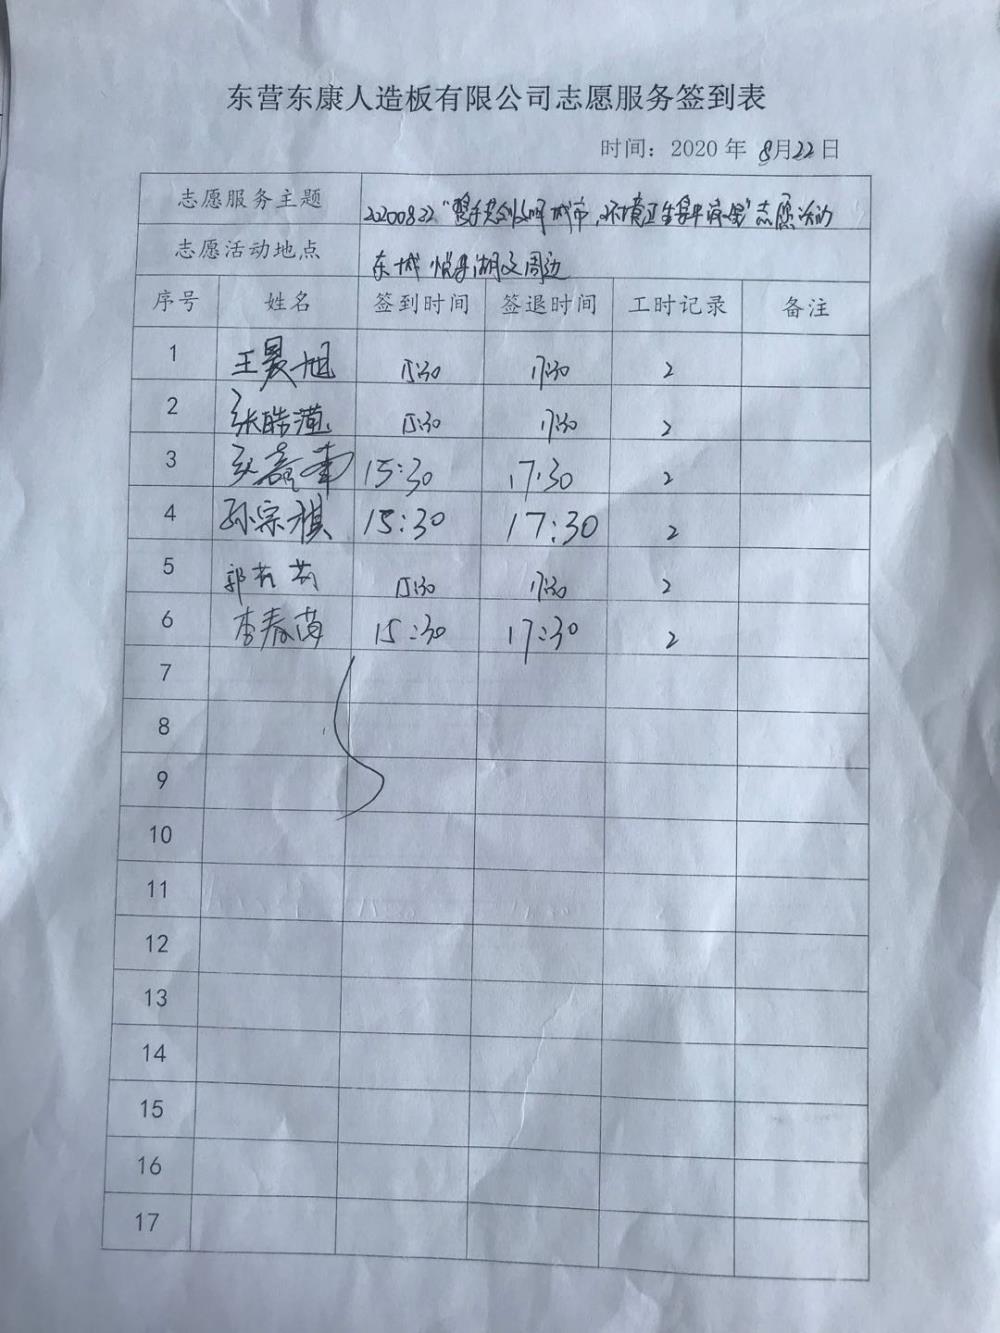 东营东康人造板有限公司志愿服务签到表
时间：2020年 8月22日
志愿服务主题 20200822“携手共创文明城市，环境卫生集中清理”志愿活动
志愿活动地点 东城悦来湖及周边
序号 姓名 签到时间 签退时间 工时记录 备注
1 王晨旭 15:30 17:30 2
2 张皓 15:30 17:30 2
3 15:30 17:30 2
4 孙宗祺 15:30 17:30 2
5 郭 15:30 17:30 2
6 李春苗 15:30 17:30 2
7
8
9
10
11
12
13
14
15
16
17